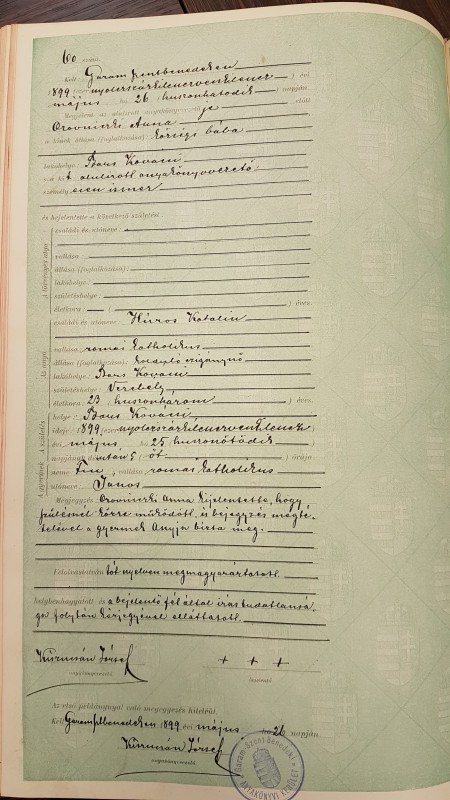 60 szám.
Kelt: Garam szentbenedeken
1899 (ezer nyolczszázkilenczvenkilencz) évi
május hó 26 (huszonhatodik) napján.
Megjelent az alulirott anyakönyvvezető je előtt
Anna
a kinek állása (foglalkozása): községi bába
lakóhelye: Bars Kovácsi
s a kit alulirott anyakönyvvezető
személyesen ismer
és bejelentette a következő születést:
A törvényes atya
családi és utóneve:
vallása:
állása (foglalkozása):
lakóhelye:
születéshelye:
életkora: ( ) éves.
Az anya
családi és utóneve: Húros Katalin
vallása: római katholikus
állása (foglalkozása): kolduló czigánynő
lakóhelye: Bars Kovácsi
születéshelye: Verebély
életkora: 23 (huszonhárom) éves.
A születés
helye: Bars Kovácsi
ideje: 1899 (ezer nyolczszázkilenczvenkilencz)
évi május hó 25 (huszonötödik)
napjának délután 5 (öt) órája
A gyermek
neme: Fiu, vallása: római katholikus
utóneve: János
Megjegyzés: Anna kijelentette, hogy
szülésnél közre működött, is bejegyzés megté-
telével a gyermek Anyja bízta meg.
Felolvastatván tót nyelven megmagyaráztatott.
helybenhagyatott és a bejelentő fél által irás tudatlansá-
ga folytán kézjegyével elláttatott.
József
anyakönyvvezető
+ + +
bejelentő
Az első példánynyal való megegyezés hiteléül.
Kelt Garamsztbenedeken 1899 évi május hó 26 napján.
József
anyakönyvvezető
Garam-Szent-Benedeki
ANYAKÖNYVI KERÜLET